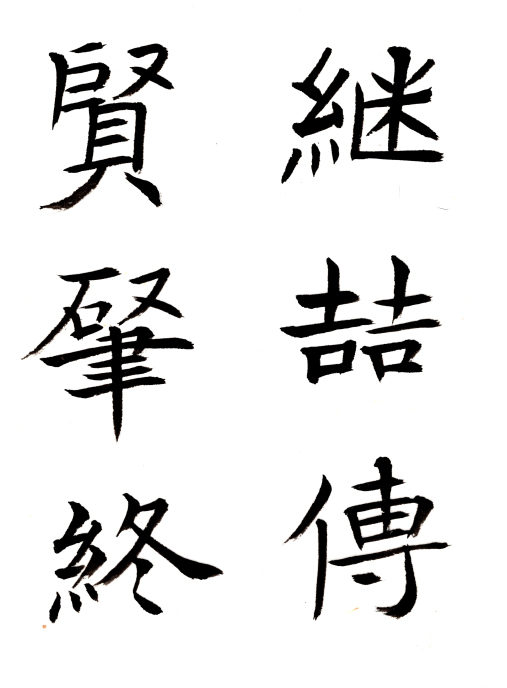 継喆傳
賢肇終